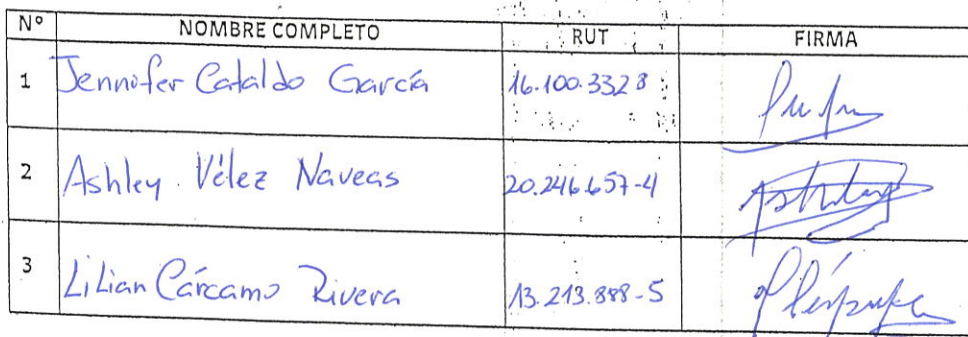 Nº NOMBRE COMPLETO RUT FIRMA
1 Jennifer Cataldo García 16.100.332 8
2 Ashley Vélez Naveas 20.246.657-4
3 Lilian Cárcamo Rivera 13.213.888-5